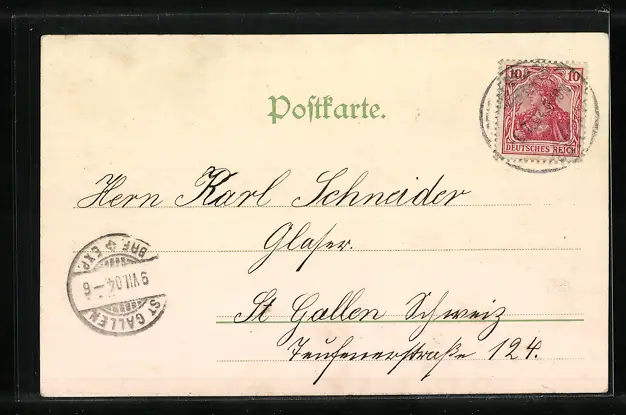 Postkarte.
10 10
DEUTSCHES REICH
Herrn Karl Schneider
Glaser.
BRF. EXP.
9 VII.04.-6
ST GALLEN
St Gallen Schweiz
Teufenerstraße 124.